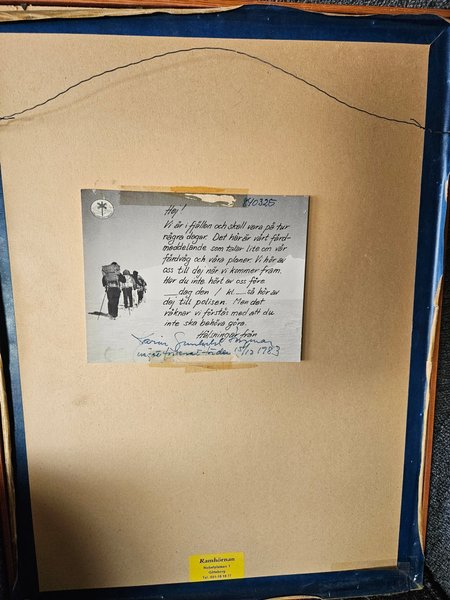 840325
Hej!
Vi är i fjällen och skall vara på tur
några dagar. Det här är vårt färd-
meddelande som talar lite om vår
färdväg och våra planer. Vi hör av
oss till dej när vi kommer fram.
Har du inte hört av oss före
__dag den / kl __ så hör av
dej till polisen. Men det
räknar vi förstås med att du
inte ska behöva göra.
Hälsningar från
1983
Ramhörnan
Göteborg